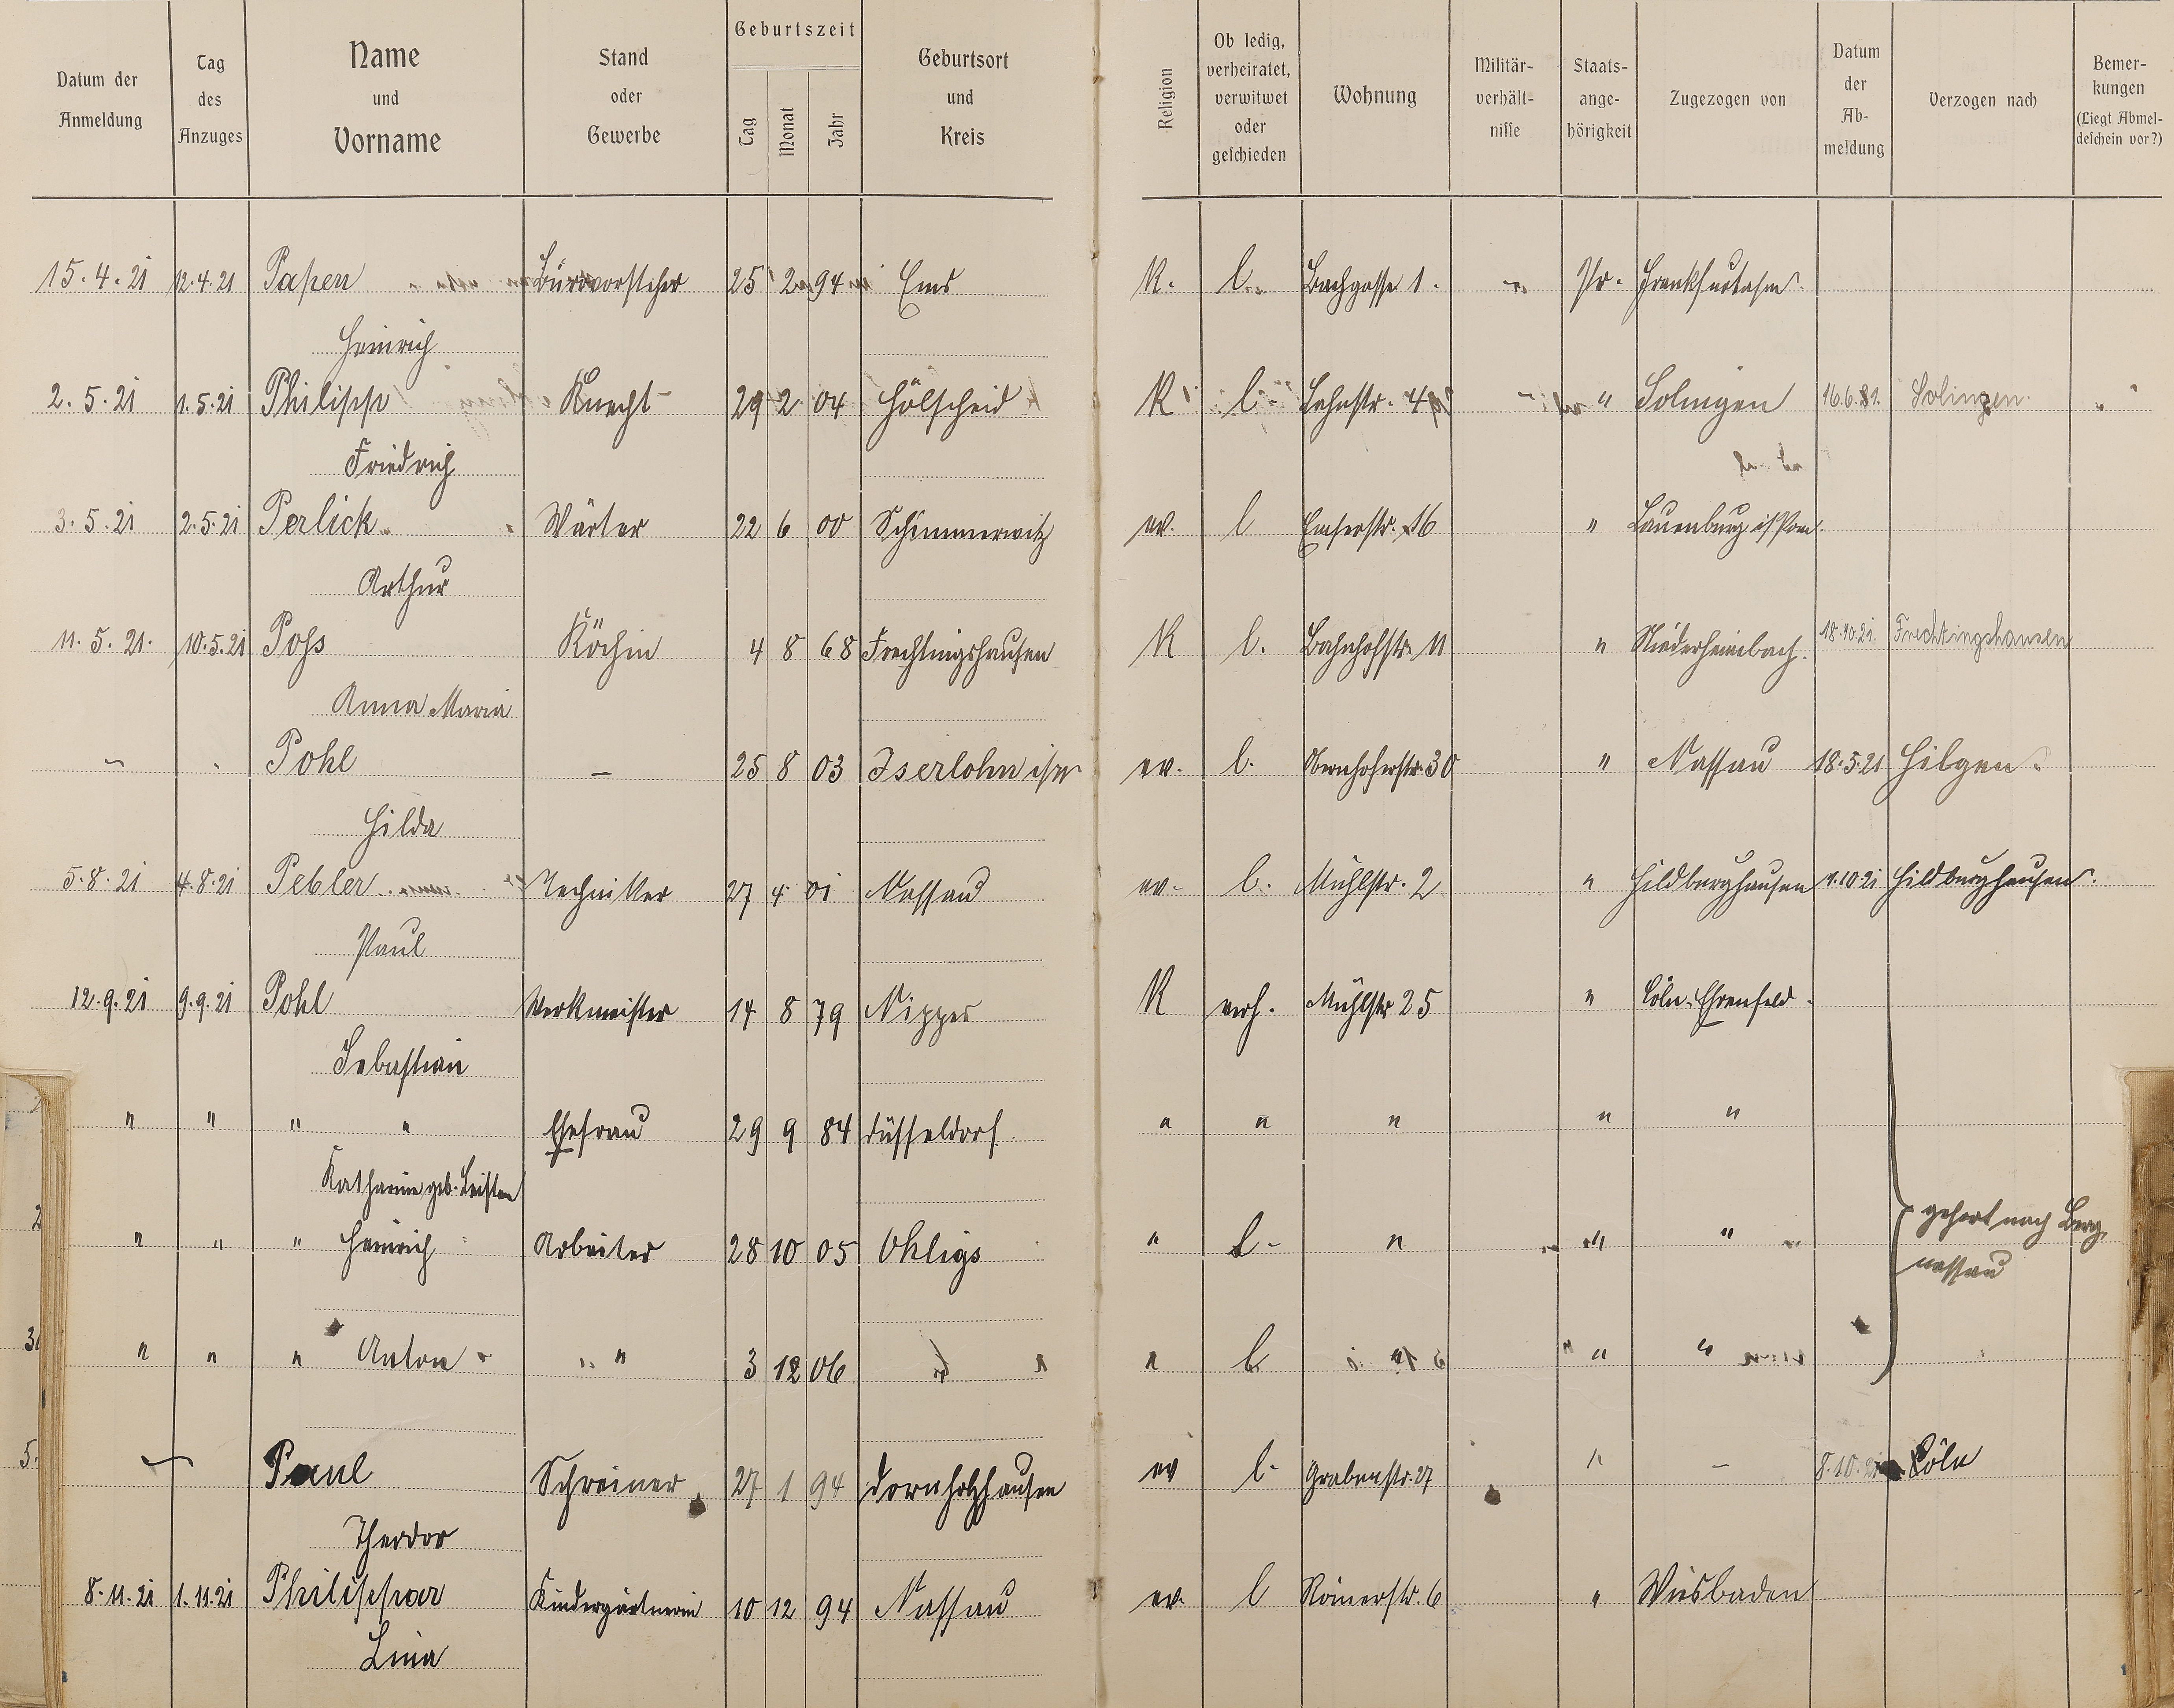 Datum der Anmeldung
Tag des Anzuges
Name und Vorname
Stand oder Gewerbe
Geburtszeit
Tag Monat Jahr
Geburtsort und Kreis
Religion
Ob ledig, verheiratet, verwitwet oder geschieden
Wohnung
Militär-verhält-nisse
Staats-ange-hörigkeit
Zugezogen von
Datum der Ab-meldung
Verzogen nach
Bemer-kungen (Liegt Abmel-deschein vor?)
15.4.21 12.4.21 Papen Bürovorsteher 25 2 94 Ems K. l. Bachgasse 1. Pr. Frankfurt a/m.
Heinrich
2.5.21 1.5.21 Philipp Knecht 29 2 04 Hölscheid K l. " Solingen 16.6.21. Solingen
Friedrich
3.5.21 2.5.21 Perlick Wärter 22 6 00 Schimmerwitz ev. l Emserstr. 16 " Lauenburg i/Pom.
Arthur
11.5.21. 10.5.21 Poss Köchin 4 8 68 Frechtingshausen K l. Bahnhofstr. 11 " Niederheimbach. 18.10.21. Frechtingshausen
Anna Maria
Pohl – 25 8 03 Iserlohn i/W ev. l. Obernhoferstr. 30 " Nassau 18.5.21 Hilgen
Hilda
5.8.21 4.8.21 Pebler Techniker 27 4 01 Nassau ev. l. Mühlstr. 2 " Hildburghausen 1.10.21 Hildburghausen.
Paul
12.9.21 9.9.21 Pohl Werkmeister 14 8 79 Nippes K verh. Mühlstr 25 " Cöln-Ehrenfeld.
Sebastian
" " " " Ehefrau 29 9 84 Düsseldorf. " " " " "
Katharina geb. Leisten
" " " Heinrich Arbeiter 28 10 05 Ohligs " l. " " " gehört nach Berg.
nassau
" " " Anton " 3 12 06 " " l. " " "
Paul Schreiner 27 1 94 Dornholzhausen ev l. Grabenstr. 27 " – 8.10.21 Cöln
Theodor
8.11.21 1.11.21 Philippar Kindergärtnerin 10 12 94 Nassau ev. l Römerstr. 6 " Wiesbaden
Lina